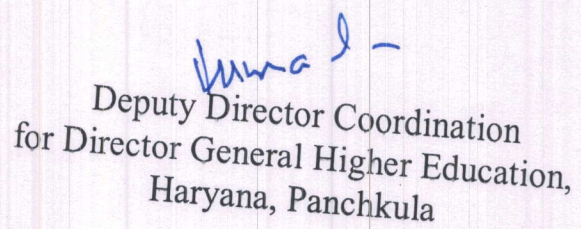 Deputy Director Coordination
for Director General Higher Education,
Haryana, Panchkula